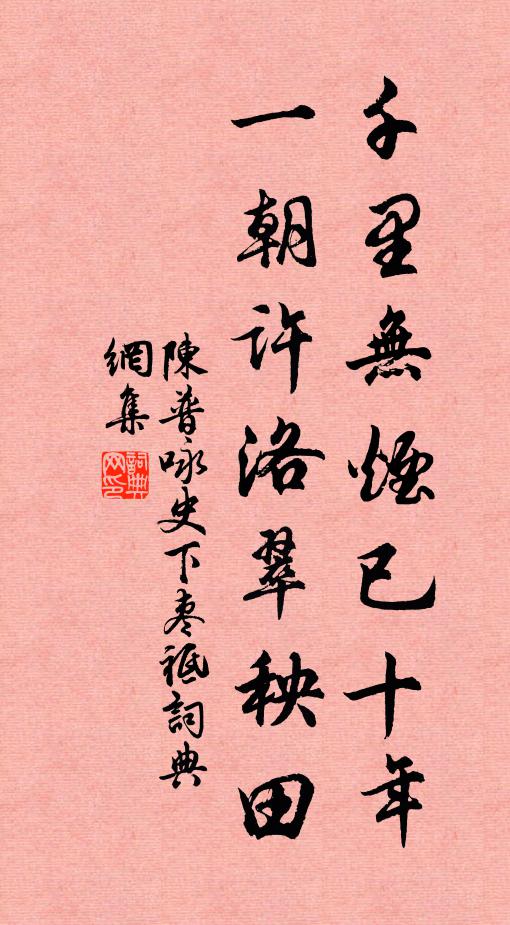 千里無煙已十年
一朝許洛翠秧田
陳普咏史下棗祗詞典
網集
詞典
网印